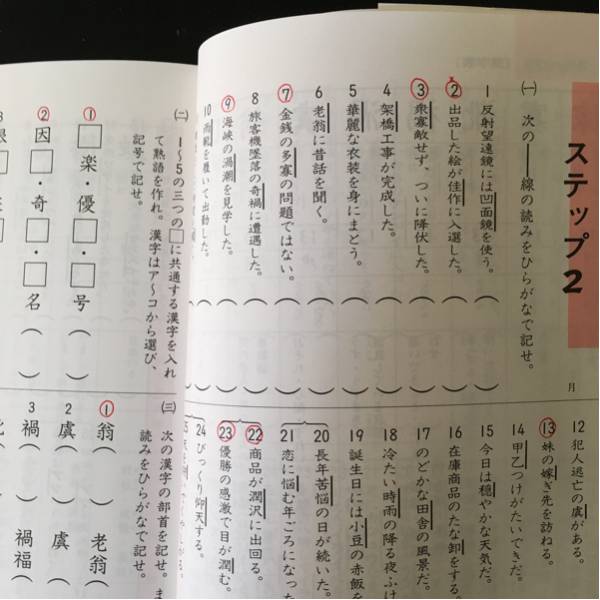 ステップ2
月
㈠ 次の──線の読みをひらがなで記せ。
1 反射望遠鏡には凹面鏡を使う。( )
2 出品した絵が佳作に入選した。( )
3 衆寡敵せず、ついに降伏した。( )
4 架橋工事が完成した。( )
5 華麗な衣装を身にまとう。( )
6 老翁に昔話を聞く。( )
7 金銭の多寡の問題ではない。( )
8 旅客機墜落の奇禍に遭遇した。( )
9 海峡の渦潮を見学した。( )
10 雨靴を履いて出動した。( )
12 犯人逃亡の虞がある。
13 妹の嫁ぎ先を訪ねる。
14 甲乙つけがたいできだ。
15 今日は穏やかな天気だ。
16 在庫商品のたな卸をする。
17 のどかな田舎の風景だ。
18 冷たい時雨の降る夜ふけ
19 誕生日には小豆の赤飯を
20 長年苦悩の日が続いた。
21 恋に悩む年ごろになった
22 商品が潤沢に出回る。
23 優勝の感激で目が潤む。
24 びっくり仰天する。
㈡ 1〜5の三つの□に共通する漢字を入れ
て熟語を作れ。漢字はア〜コから選び、
記号で記せ。
1 □楽・優□・□号( )
2 因□・奇□・□名( )
㈢ 次の漢字の部首を記せ。ま
読みをひらがなで記せ。
1 翁( ) 老翁
2 虞( ) 虞
3 禍( ) 禍福